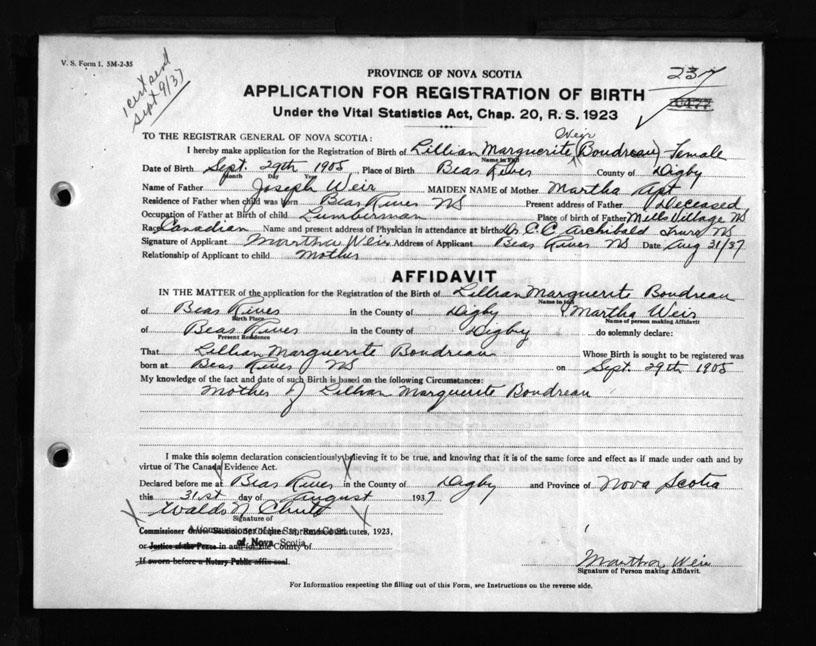 V. S. Form 1. 5M-2-35
1 cert send
Sept 9/37
237
PROVINCE OF NOVA SCOTIA
APPLICATION FOR REGISTRATION OF BIRTH
Under the Vital Statistics Act, Chap. 20, R. S. 1923
TO THE REGISTRAR GENERAL OF NOVA SCOTIA:
Weir
I hereby make application for the Registration of Birth of Lillian Marguerite (Boudreau) Female
Name in Full
Date of Birth Sept. 29th 1905 Place of Birth Bear River County of Digby
Month Day Year
Name of Father Joseph Weir MAIDEN NAME of Mother Martha Apt
Residence of Father when child was born Bear River NS Present address of Father Deceased
Occupation of Father at Birth of child Lumberman Place of birth of Father Mills Village NS
Race Canadian Name and present address of Physician in attendance at birth Dr. C. C. Archibald Truro NS
Signature of Applicant Martha Weir Address of Applicant Bear River NS Date Aug 31/37
Relationship of Applicant to child Mother
AFFIDAVIT
IN THE MATTER of the application for the Registration of the Birth of Lillian Marguerite Boudreau
Name in full
of Bear River in the County of Digby I, Martha Weir
Birth Place Name of person making Affidavit
of Bear River in the County of Digby do solemnly declare:
Present Residence
That Lillian Marguerite Boudreau Whose Birth is sought to be registered was
born at Bear River NS on Sept. 29th 1905
My knowledge of the fact and date of such Birth is based on the following Circumstances:
Mother of Lillian Marguerite Boudreau
I make this solemn declaration conscientiously believing it to be true, and knowing that it is of the same force and effect as if made under oath and by
virtue of The Canada Evidence Act.
Declared before me at Bear River in the County of Digby and Province of Nova Scotia
this 31st day of August 1937
X Waldo N Chute X
Signature of
Commissioner A Commissioner of the Supreme Court Statutes, 1923,
of Nova Scotia
or Justice of the Peace in and for the County of
If sworn before a Notary Public affix seal.
Martha Weir
Signature of Person making Affidavit.
For Information respecting the filling out of this Form, see Instructions on the reverse side.